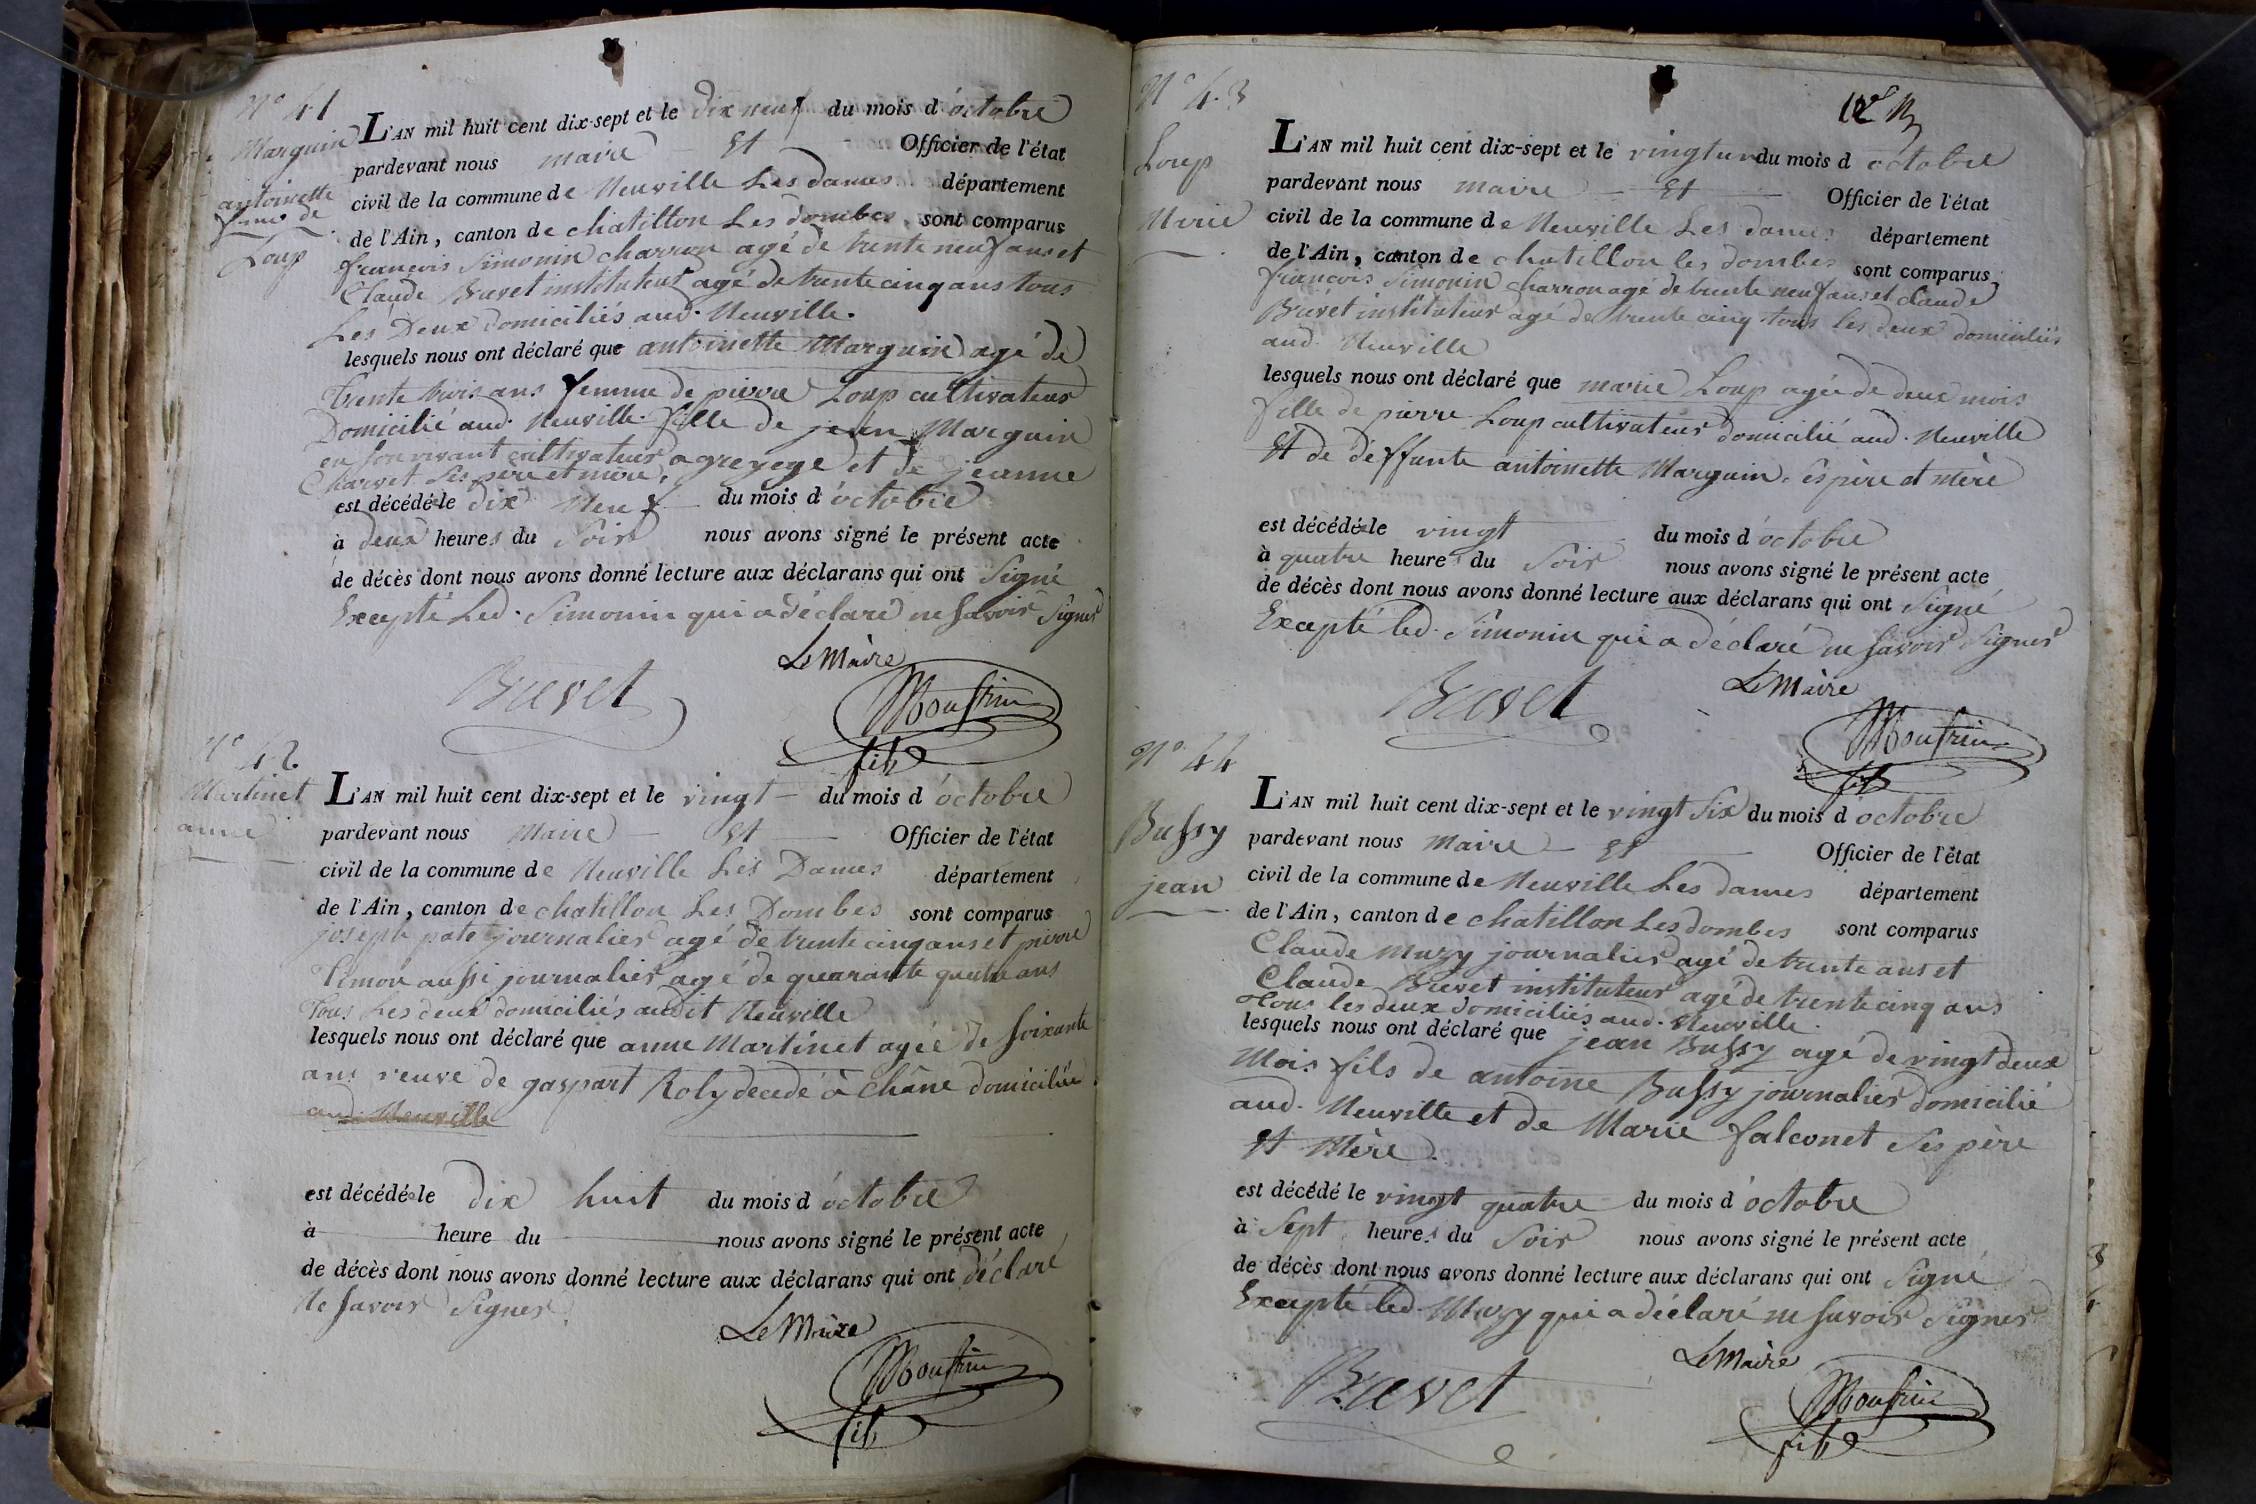 N° 41
Marguin
antoinette
femme de
Loup
L'AN mil huit cent dix-sept et le dix neuf du mois d'octobre
pardevant nous maire Et Officier de l'état
civil de la commune de Neuville Les dames département
de l'Ain, canton de chatillon Les dombes sont comparus
françois Simonin charron agé de trente neuf ans et
Claude Brevet instituteur agé de trente cinq ans tous
Les Deux domiciliés aud. Neuville.
lesquels nous ont déclaré que antoinette Marguin agé de
trente trois ans femme de pierre Loup cultivateur
Domicilié aud. Neuville fille de jean Marguin
en son vivant cultivateur a greyege et de jeanne
Charvet Ses père et mère,
est décédée le dix Neuf du mois d'octobre
à deux heures du Soir nous avons signé le présent acte
de décès dont nous avons donné lecture aux déclarans qui ont Signé
Excepté Led. Simonin qui a déclaré ne Savoir Signer
Le Maire
Brevet
fils
N° 42
Martinet
anne
L'AN mil huit cent dix-sept et le vingt du mois d'octobre
pardevant nous Maire Et Officier de l'état
civil de la commune de Neuville Les Dames département
de l'Ain, canton de chatillon Les Dombes sont comparus
joseph journalier agé de trente cinq ans et pierre
aussi journalier agé de quarante quatre ans
Tous Les deux domiciliés audit Neuville
lesquels nous ont déclaré que anne Martinet agée de Soixante
ans veuve de gaspart Roly decedé à Châne domiciliée
aud. Neuville
est décédée le dix huit du mois d'octobre
à heure du nous avons signé le présent acte
de décès dont nous avons donné lecture aux déclarans qui ont déclaré
Ne Savoir Signer
Le Maire
fils
N° 43
Loup
Marie
L'AN mil huit cent dix-sept et le vingt un du mois d octobre
pardevant nous maire Et Officier de l'état
civil de la commune de Neuville Les dames département
de l'Ain, canton de chatillon les dombes sont comparus
françois Simonin charron agé de trente neuf ans et claude
Brevet instituteur agé de trente cinq tous les deux domiciliés
aud. Neuville
lesquels nous ont déclaré que marie Loup agée de deux mois
fille de pierre Loup cultivateur domicilié aud. Neuville
Et de déffunte antoinette Marguin. Ses père et mère
est décédée le vingt du mois d'octobre
à quatre heures du Soir nous avons signé le présent acte
de décès dont nous avons donné lecture aux déclarans qui ont Signé
Excepté led. Simonin qui a déclaré ne Savoir Signer
Le Maire
Brevet
fils
N° 44
Bussy
jean
L'AN mil huit cent dix-sept et le vingt Six du mois d'octobre
pardevant nous Maire Et Officier de l'état
civil de la commune de Neuville Les dames département
de l'Ain, canton de chatillon Les dombes sont comparus
Claude Muzy journalier agé de trente ans et
Claude Brevet instituteur agé de trente cinq ans
Tous les deux domiciliés aud. Neuville.
lesquels nous ont déclaré que jean Bussy agé de vingt deux
Mois fils de antoine Bussy journalier domicilié
aud. Neuville et de Marie falconet Ses père
Et Mère.
est décédé le vingt quatre du mois d'octobre
à Sept heures du Soir nous avons signé le présent acte
de décès dont nous avons donné lecture aux déclarans qui ont Signé
Excepté led. Muzy qui a déclaré ne Savoir Signer
Le Maire
Brevet
fils